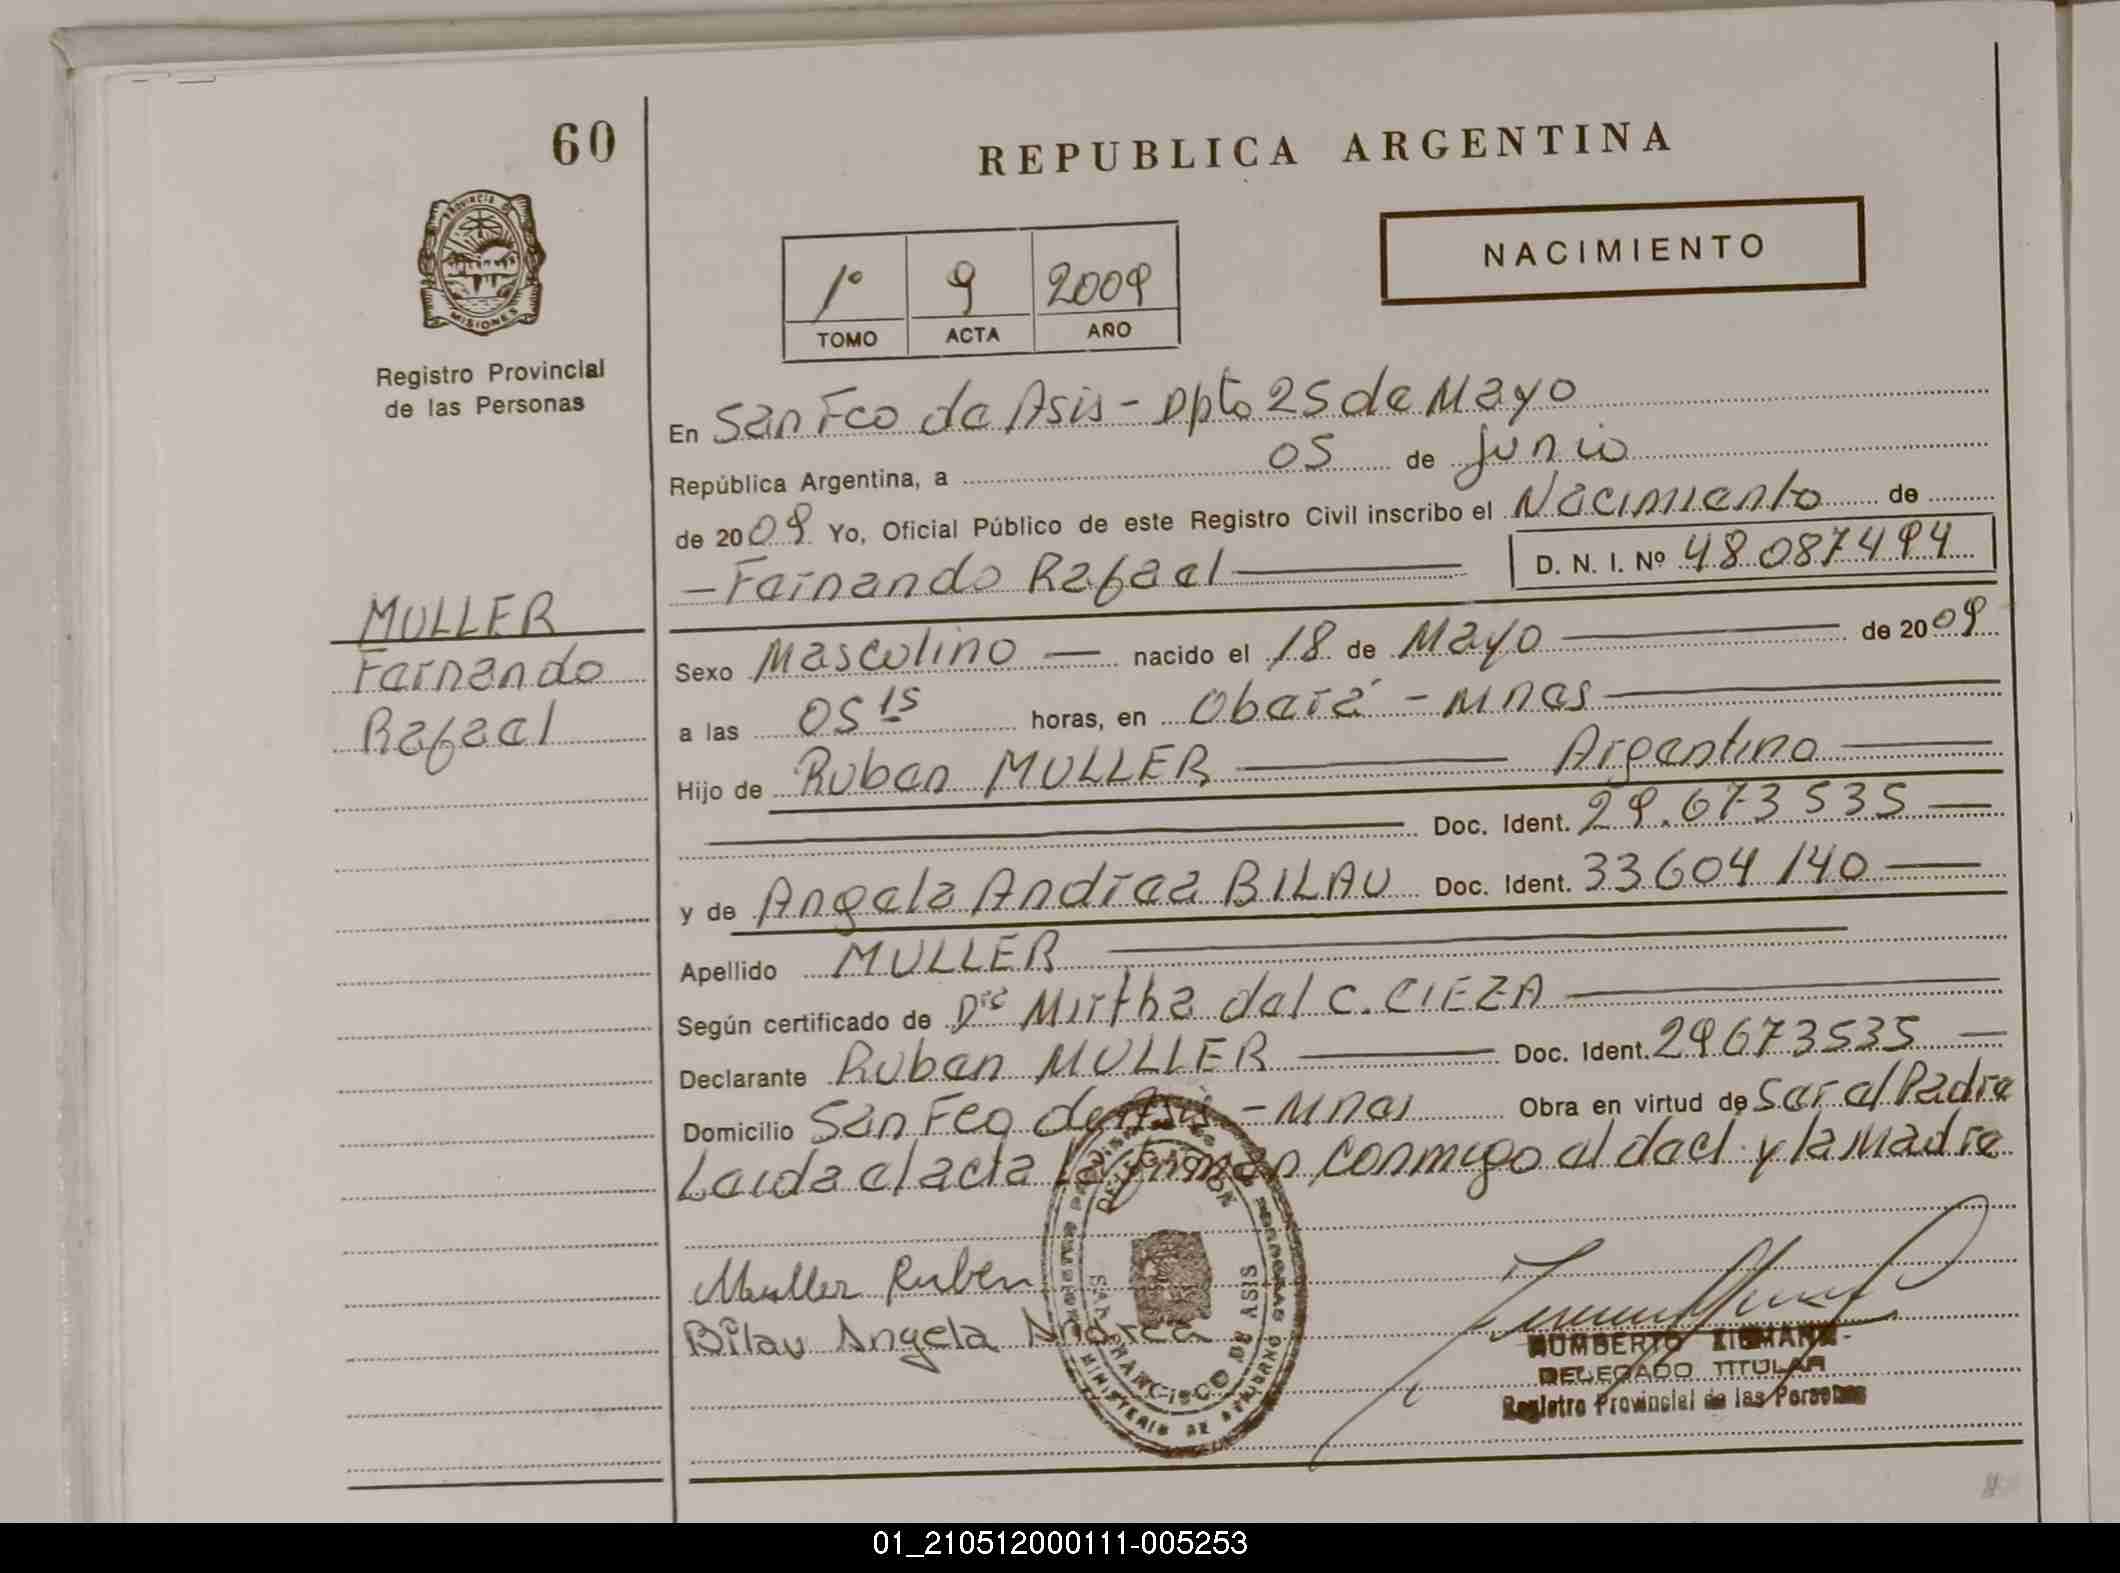 60
REPUBLICA ARGENTINA
NACIMIENTO
1º 9 2009
TOMO ACTA AÑO
PROVINCIA DE
MISIONES
Registro Provincial
de las Personas
En San Fco de Asis - Dpto 25 de Mayo
República Argentina, a 05 de Junio
de 2009 Yo, Oficial Público de este Registro Civil inscribo el Nacimiento de
- Fernando Rafael D. N. I. Nº 48.087494
MULLER
Fernando
Rafael
Sexo Masculino nacido el 18 de Mayo de 2009
a las 05 15 horas, en Oberá - Mnes
Hijo de Ruben MULLER Argentino
Doc. Ident. 29.673535
y de Angela Andrea BILAU Doc. Ident. 33604140
Apellido MULLER
Según certificado de Dra Mirtha del C. CIEZA
Declarante Ruben MULLER Doc. Ident. 29673535
Domicilio San Fco de Asis - Mnes Obra en virtud de Ser el Padre
Leida el acta la firman conmigo el decl. y la Madre
Muller Ruben
Bilau Angela Andrea
DELEGACION
SAN FRANCISCO DE ASIS
MINISTERIO DE GOBIERNO
HUMBERTO
DELEGADO TITULAR
Registro Provincial de las Personas
01_210512000111-005253